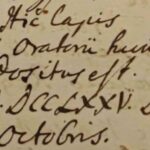 Hic Lapis
Oratorii hu
Positus est.
DCCLXXV. D
Octobris.